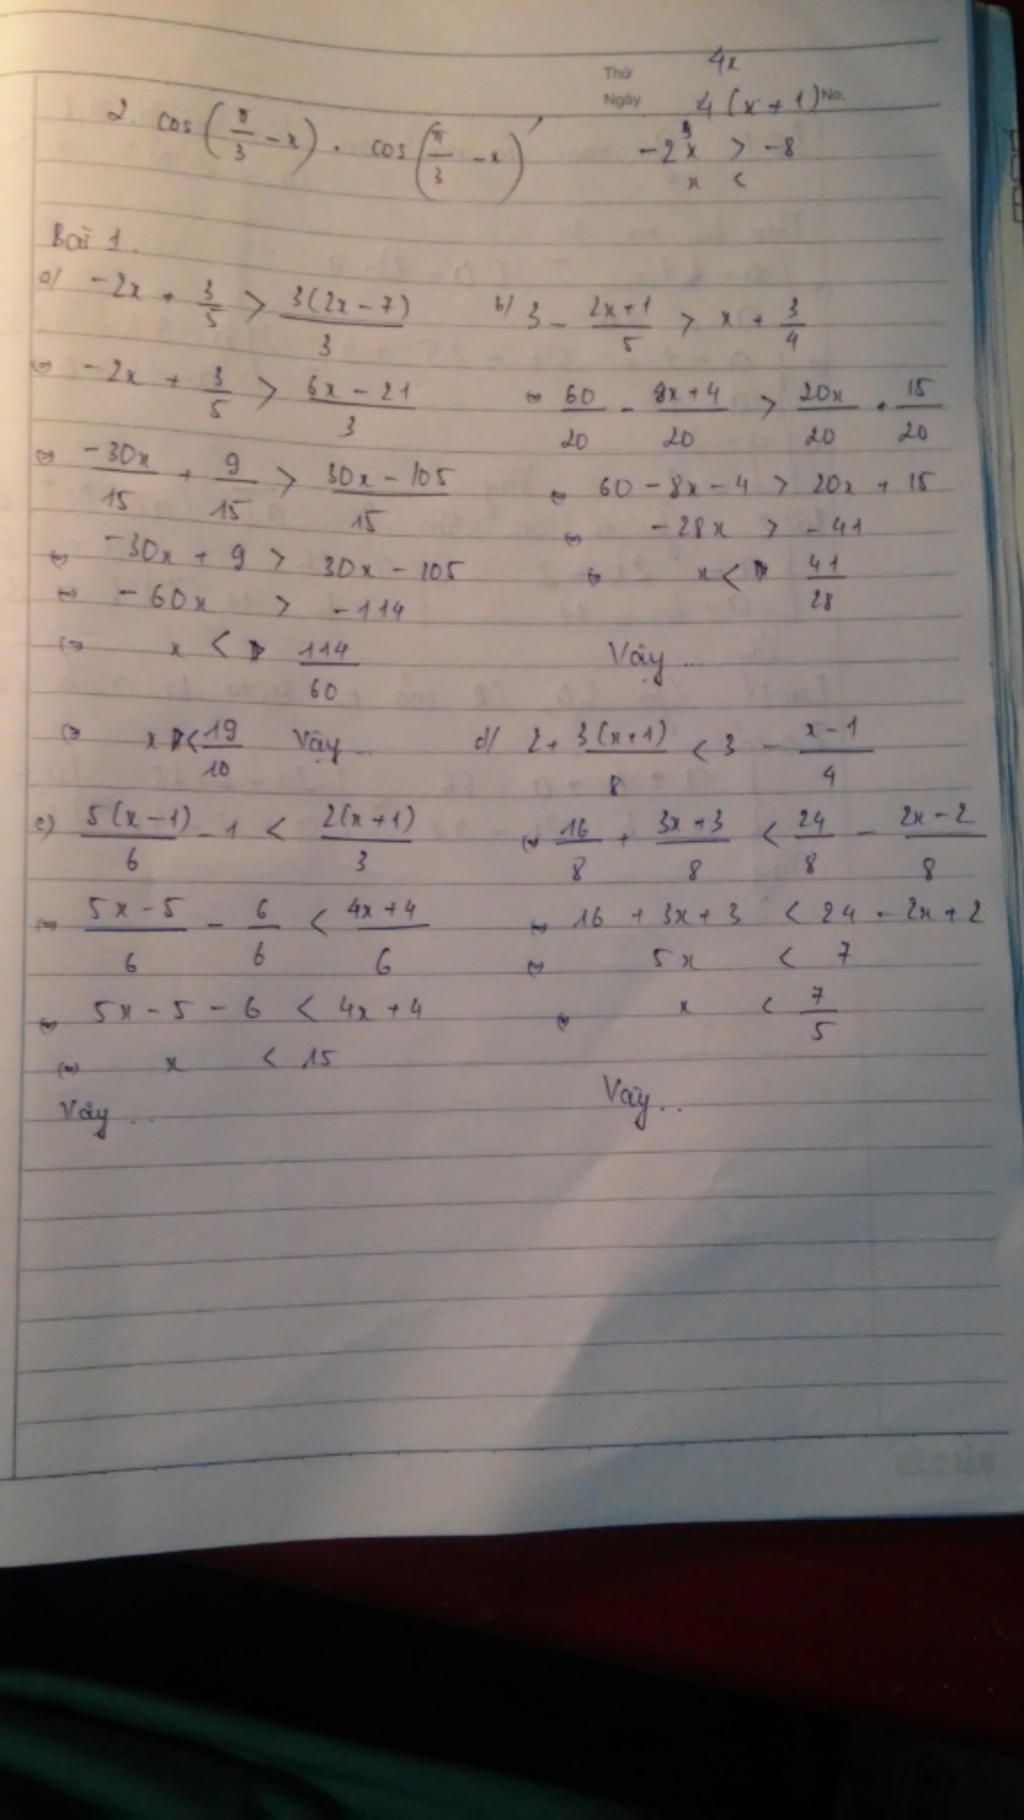 4x
Thứ
Ngày 4(x+1) No.
2. cos(π/3 - x) . cos(π/3 - x)'
-2x > -8
x <
Bài 1.
a) -2x + 3/5 > 3(2x-7)/3
⇔ -2x + 3/5 > 6x-21/3
⇔ -30x/15 + 9/15 > 30x-105/15
⇔ -30x + 9 > 30x - 105
⇔ -60x > -114
⇔ x < 114/60
⇔ x < 19/10 Vậy...
b) 3 - 2x+1/5 > x + 3/4
⇔ 60/20 - 8x+4/20 > 20x/20 + 15/20
⇔ 60 - 8x - 4 > 20x + 15
⇔ -28x > -41
⇔ x < 41/28
Vậy...
c) 5(x-1)/6 - 1 < 2(x+1)/3
⇔ 5x-5/6 - 6/6 < 4x+4/6
⇔ 5x - 5 - 6 < 4x + 4
⇔ x < 15
Vậy...
d) 2 + 3(x+1)/8 < 3 - x-1/4
⇔ 16/8 + 3x+3/8 < 24/8 - 2x-2/8
⇔ 16 + 3x + 3 < 24 - 2x + 2
⇔ 5x < 7
⇔ x < 7/5
Vậy...